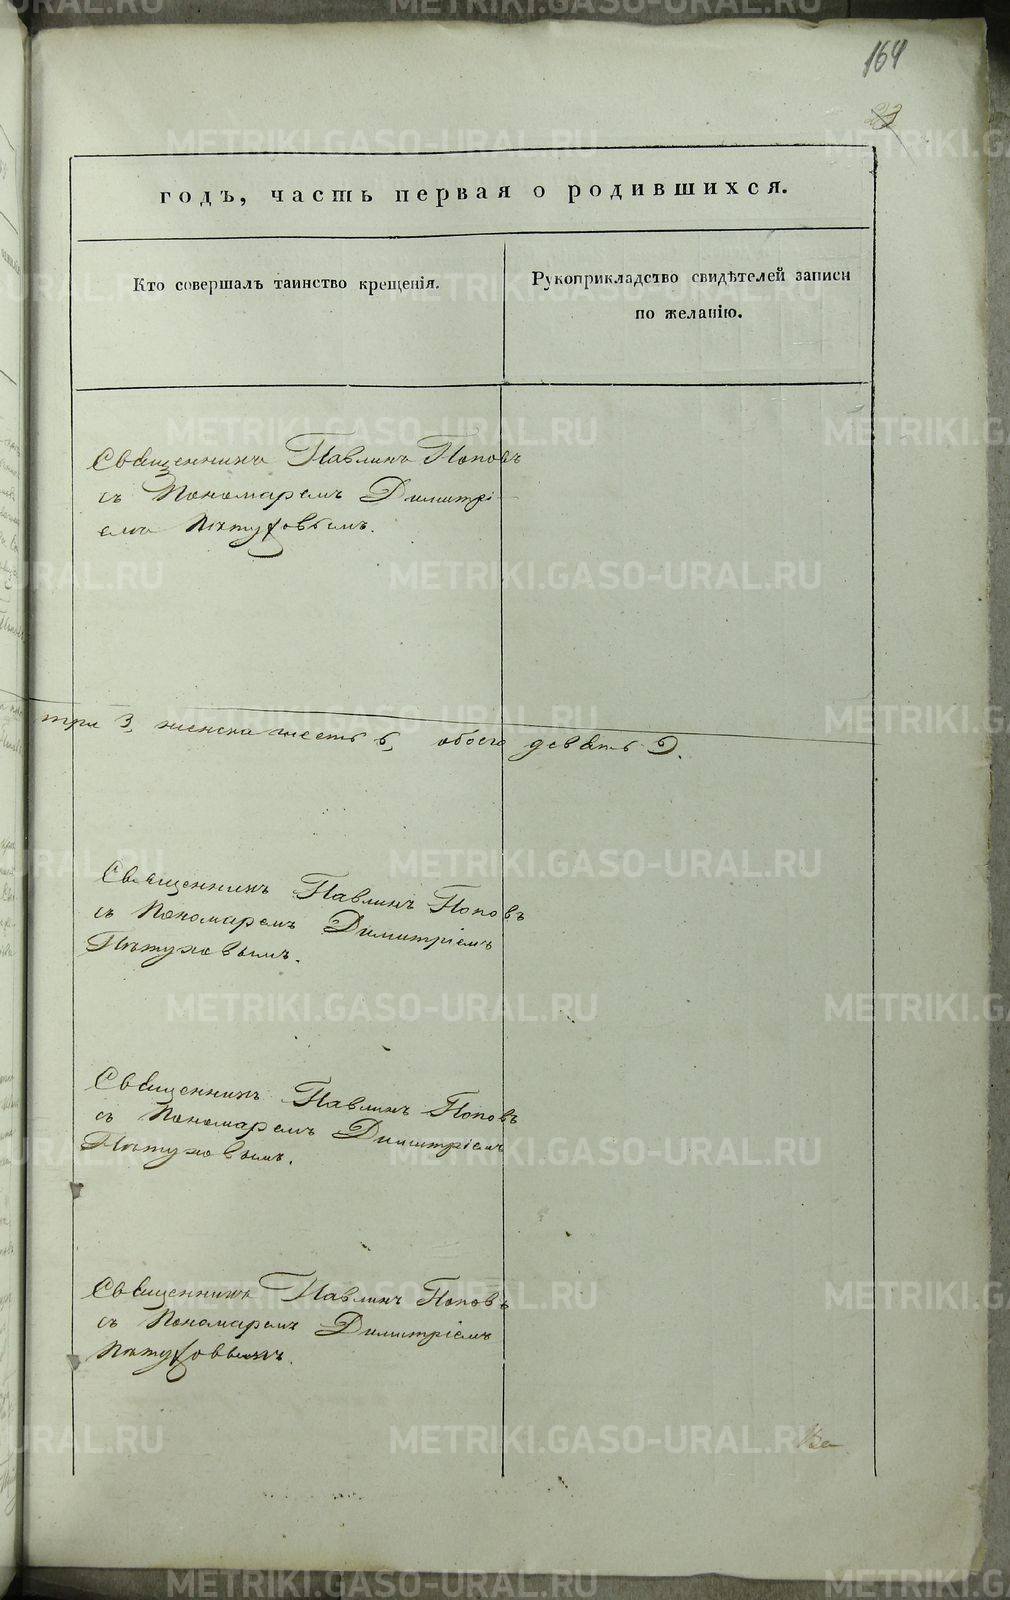 164
23
годъ, часть первая о родившихся.
Кто совершалъ таинство крещенія.
Рукоприкладство свидѣтелей записи
по желанію.
Священникъ Павлинъ Поповъ
съ Пономаремъ Димитрі-
емъ Пѣтуховымъ.
три 3, женска шесть 6, обоего девять 9.
Священникъ Павлинъ Поповъ
съ Пономаремъ Димитріемъ
Пѣтуховымъ.
Священникъ Павлинъ Поповъ
съ Пономаремъ Димитріемъ
Пѣтуховымъ.
Священникъ Павлинъ Поповъ
съ Пономаремъ Димитріемъ
Пѣтуховымъ.
METRIKI.GASO-URAL.RU